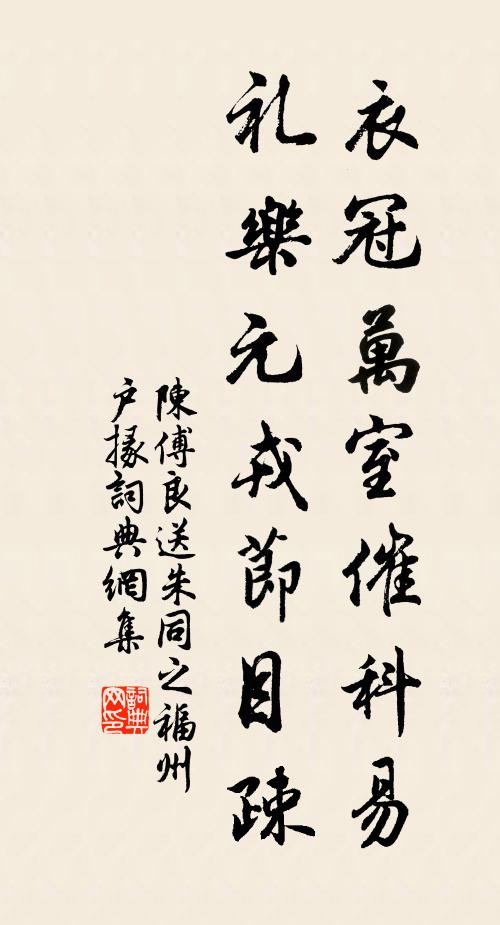 衣冠萬室催科易
礼樂元戎節目疎
陳傅良送朱同之福州
户掾詞典網集
詞典网印